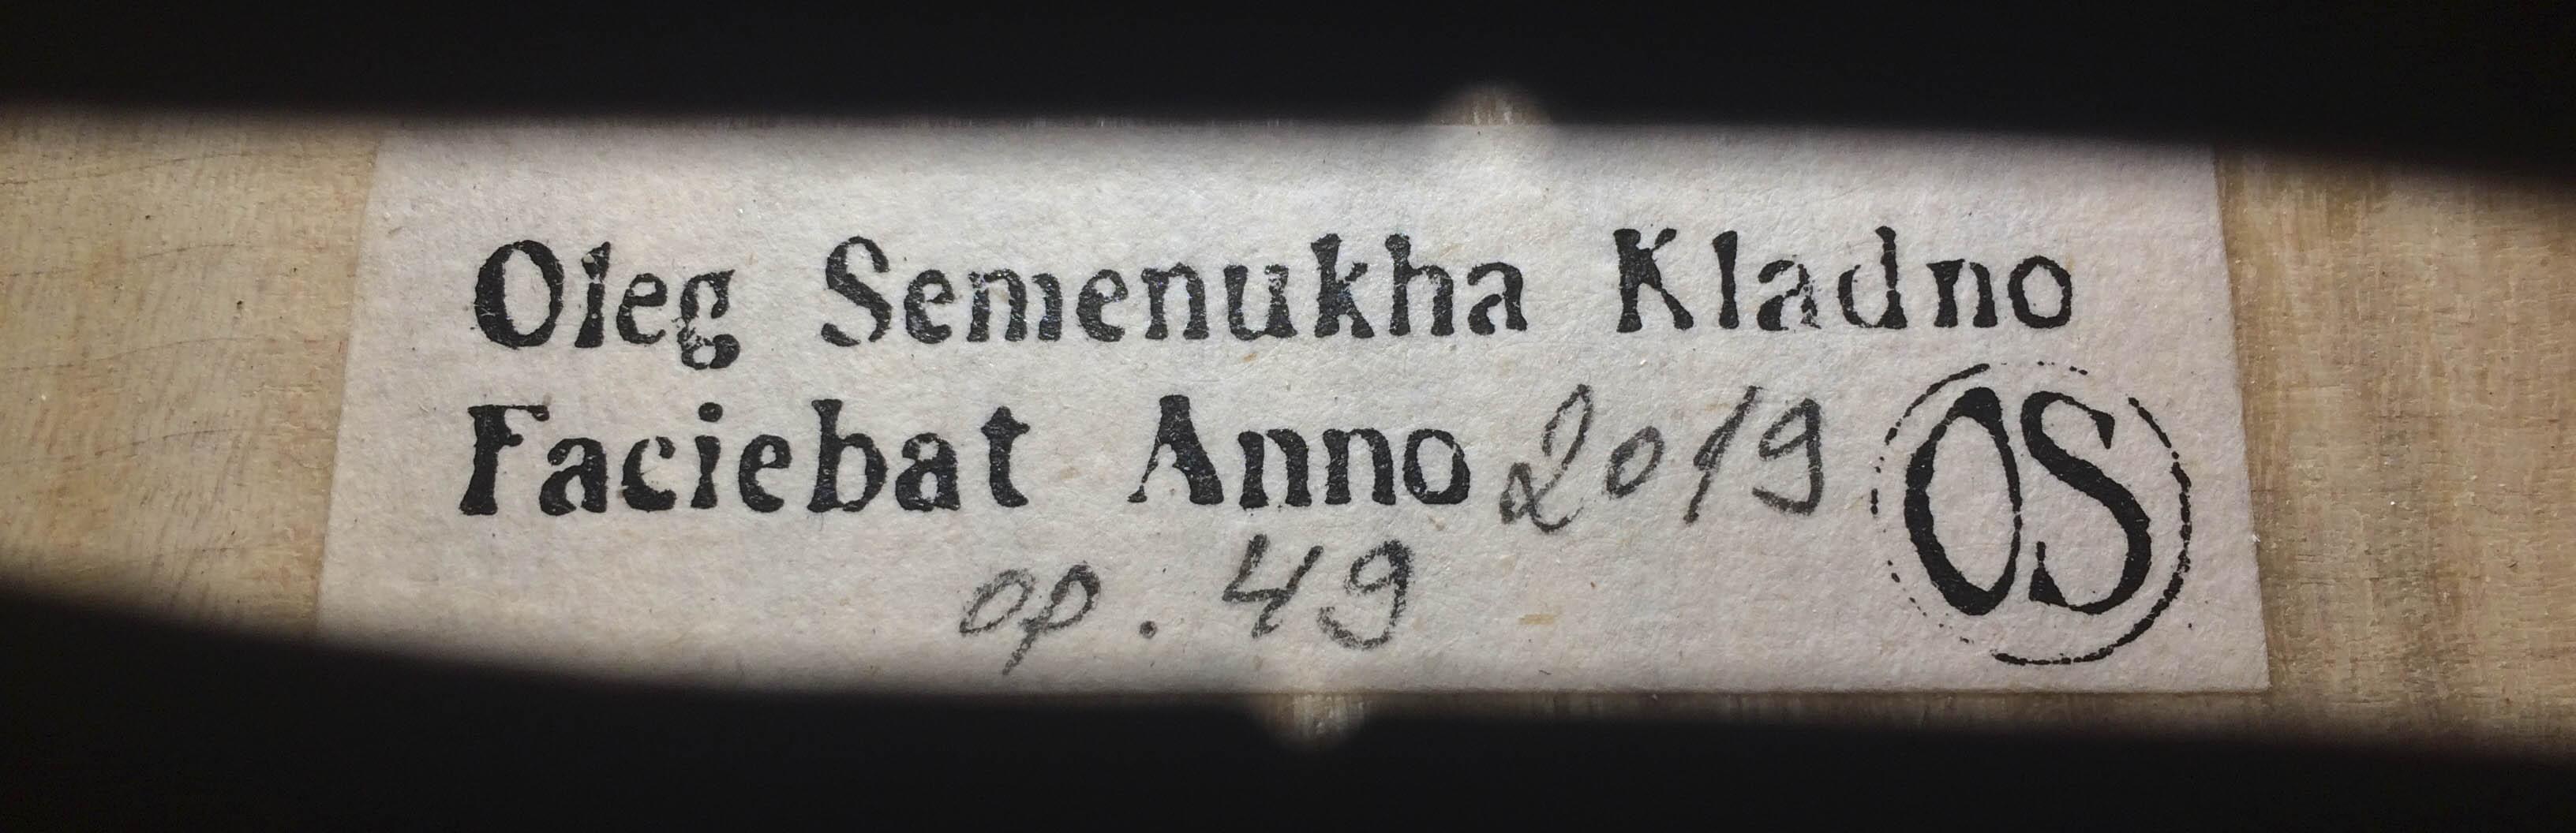 Oleg Semenukha Kladno
Faciebat Anno 2019
OS
op. 49